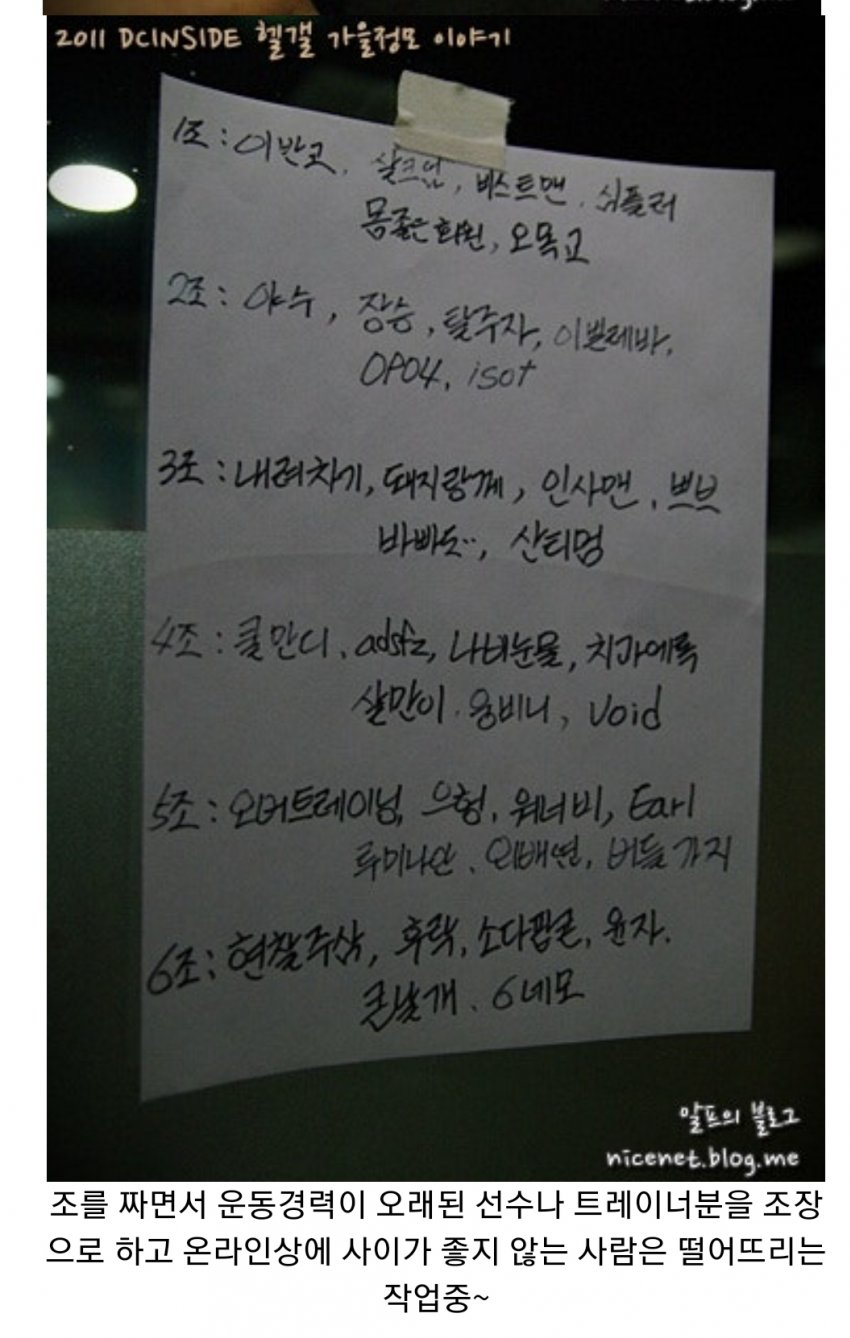 2011 DCINSIDE 헬갤 가을정모 이야기
1조 : 이반코, 살크업, 비스트맨, 쉬플러
몸좋은회원, 오목교
2조 : 야수, 장승, 탈주자, 이발레바,
OPO4, isot
3조 : 내려차기, 돼지랑께, 인사맨, 쁘브
바빠도.., 산티멈
4조 : 쿨만디, adsfz, 나비눈물, 치과에룩
살만이, 용비니, Void
5조 : 오버트레이닝, 으헝, 워너비, Earl
루미나안, 외배엽, 버들가지
6조 : 현찰주삼, 후락, 소다팝굳, 윤자.
큰날개, 6네모
말프의 블로그
nicenet.blog.me
조를 짜면서 운동경력이 오래된 선수나 트레이너분을 조장
으로 하고 온라인상에 사이가 좋지 않는 사람은 떨어뜨리는
작업중~